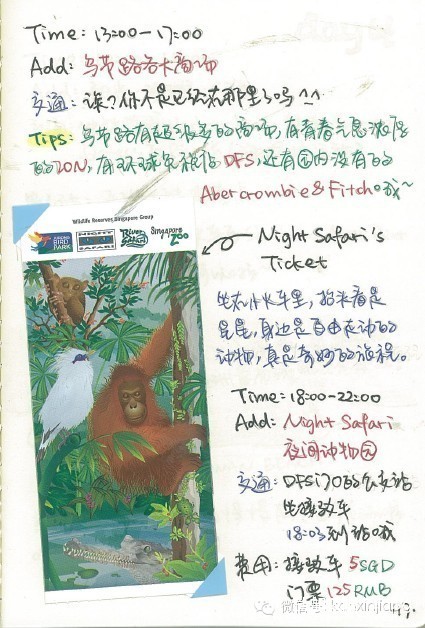 Time: 13:00-17:00
Add: 乌节路各大商场
交通: 诶?你不是已经在那里了吗^^
Tips: 乌节路有超级多的商场,有青春气息浓厚
的ION,有环球免税店DFS,还有国内没有的
Abercrombie & Fitch哦~
Wildlife Reserves Singapore Group
JURONG BIRD PARK
NIGHT SAFARI
River Safari
Singapore Zoo
Night Safari's
Ticket
坐在小火车里,抬头看是
星星,身边是自由走动的
动物,真是奇妙的旅程。
Time: 18:00-22:00
Add: Night Safari
夜间动物园
交通: DFS门口的公交站
坐接驳车
18:03到站哦
费用: 接驳车 5SGD
门票 125RMB
微信号: kanxinjiapo